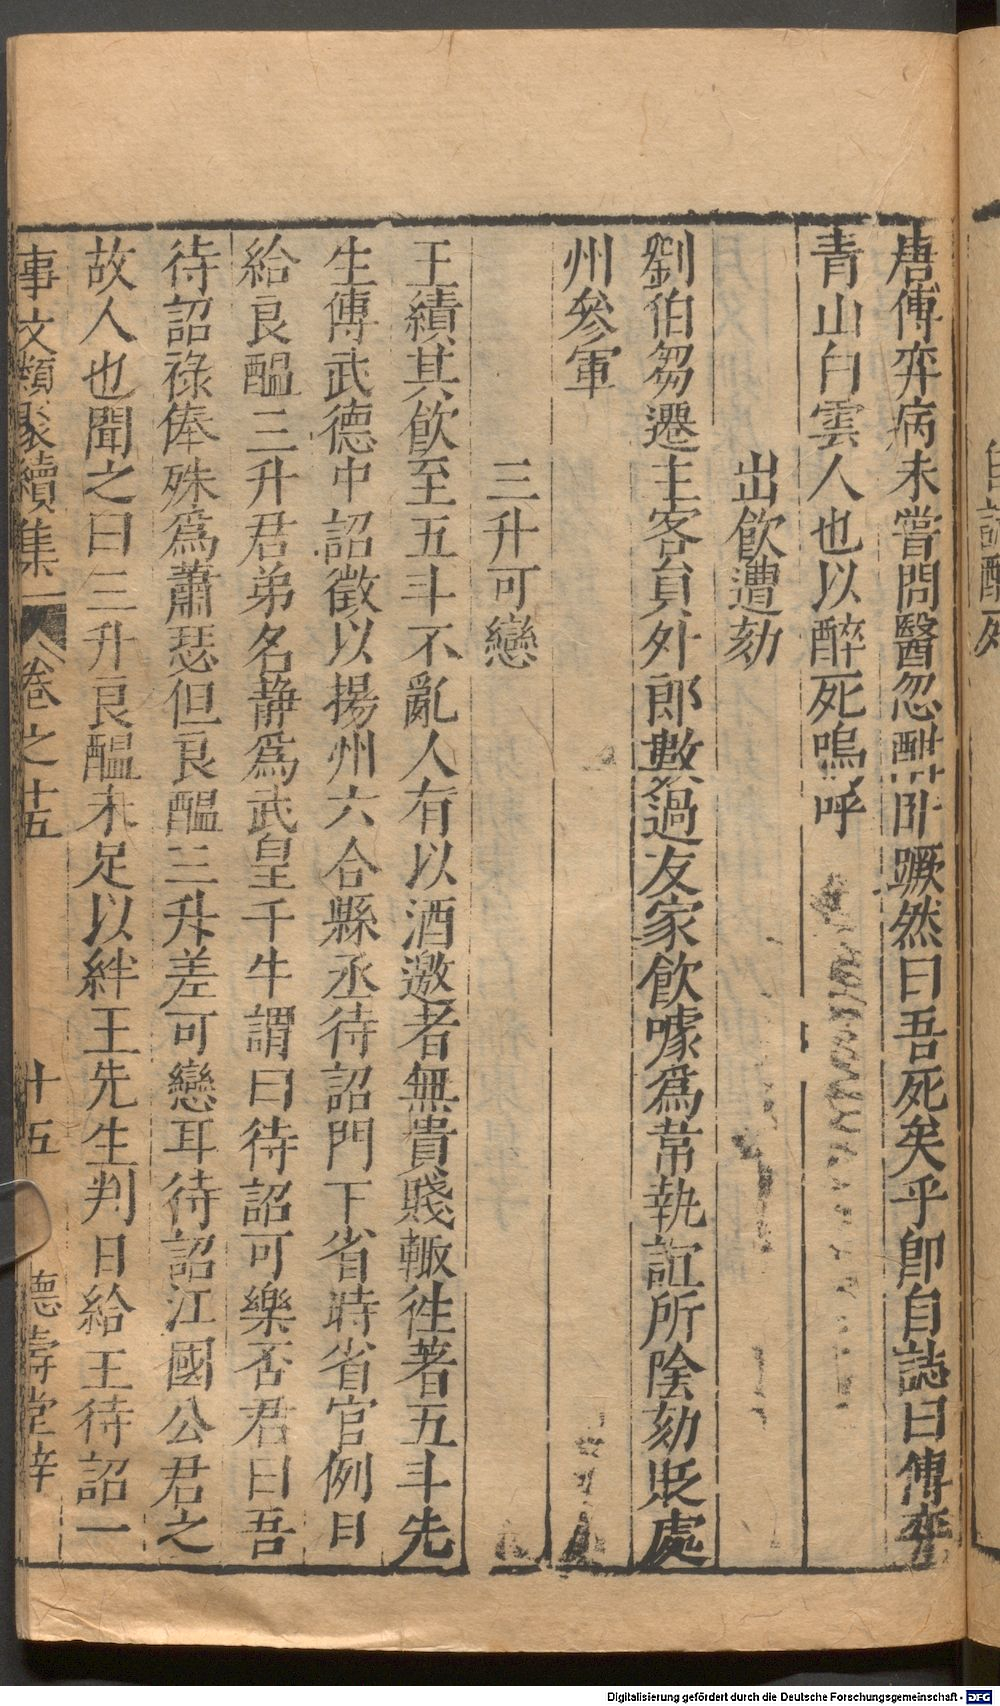 自誌醉死
唐傅弈病未嘗問醫忽酣卧蹶然曰吾死矣乎卽自誌曰傅弈
青山白雲人也以醉死嗚呼
出飲遭劾
劉伯芻遷主客員外郎數過友家飲噱爲韋執誼所陰劾貶處
州參軍
三升可戀
王績其飲至五斗不亂人有以酒邀者無貴賤輙徃著五斗先
生傳武德中詔徵以揚州六合縣丞待詔門下省時省官例日
給良醞三升君弟名靜爲武皇千牛謂曰待詔可樂否君曰吾
待詔祿俸殊爲蕭瑟但良醞三升差可戀耳待詔江國公君之
故人也聞之曰三升良醞未足以絆王先生判日給王待詔一
事文類聚續集 卷之十五 十五 德壽堂梓
Digitalisierung gefördert durch die Deutsche Forschungsgemeinschaft - DFG